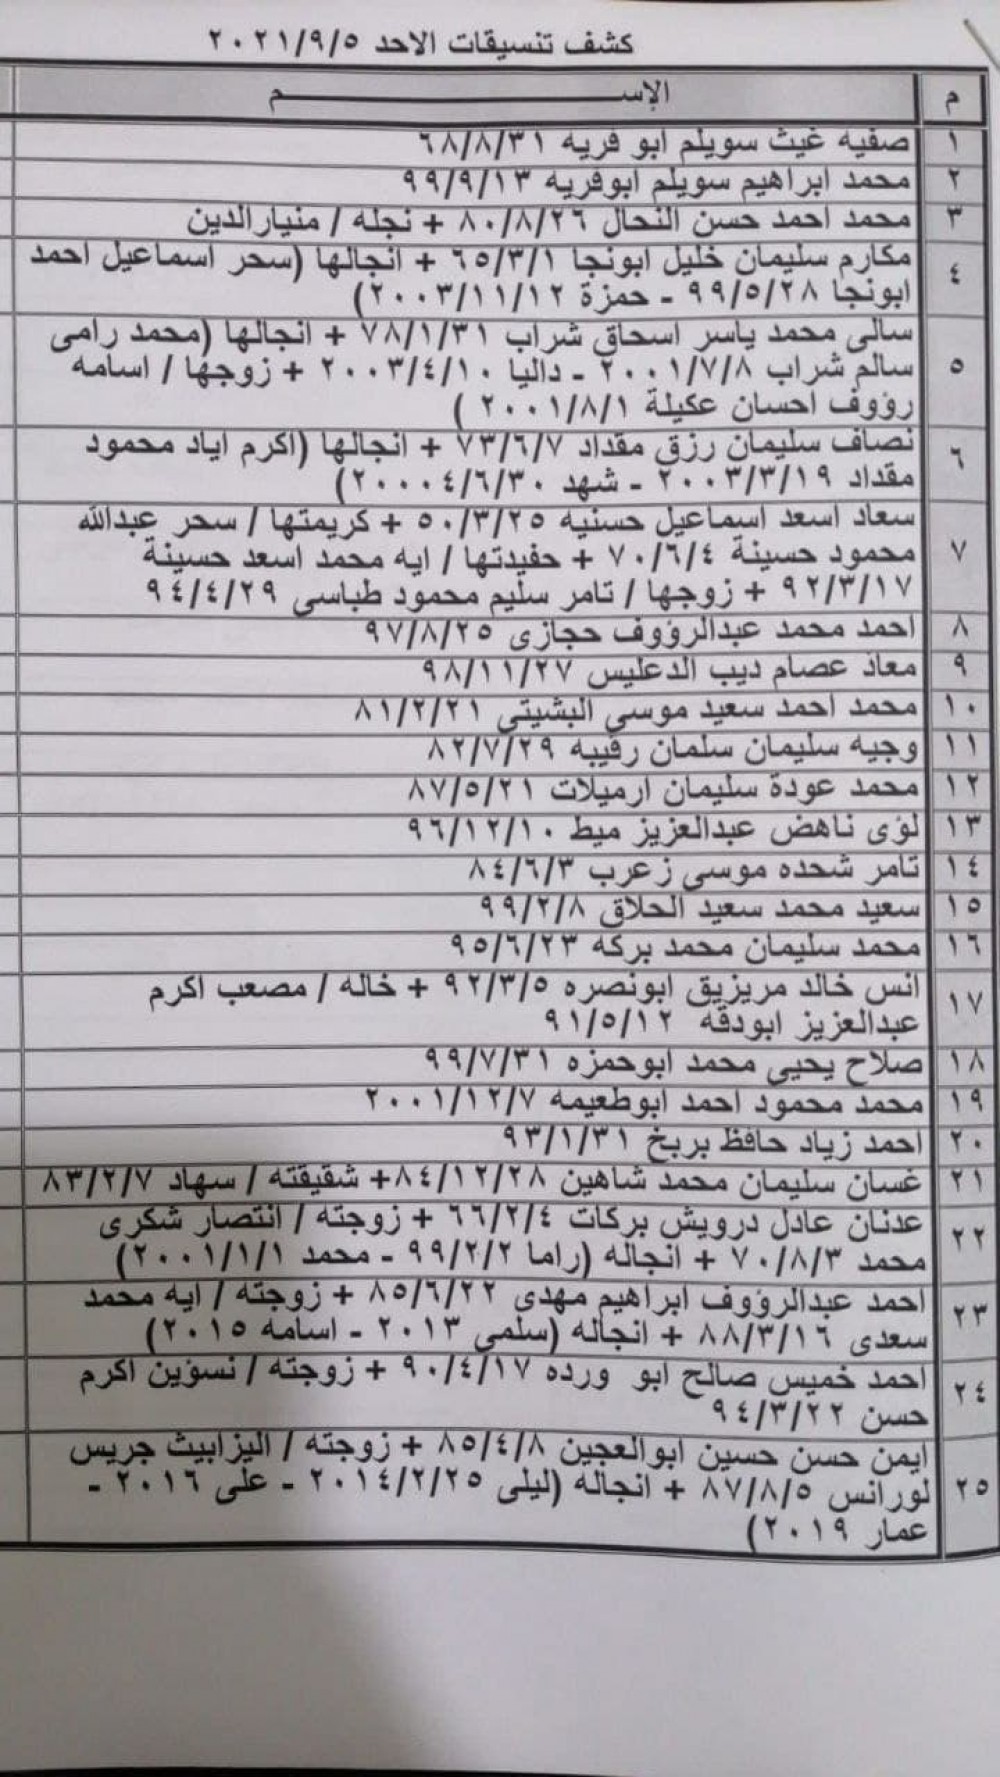 كشف تنسيقات الاحد ٢٠٢١/٩/٥
م الإســـــــــــــــــــــم
١ صفيه غيث سويلم ابو فريه ٦٨/٨/٣١
٢ محمد ابراهيم سويلم ابوفريه ٩٩/٩/١٣
٣ محمد احمد حسن النحال ٨٠/٨/٢٦ + نجله / منيارالدين
٤ مكارم سليمان خليل ابونجا ٦٥/٣/١ + انجالها (سحر اسماعيل احمد
ابونجا ٩٩/٥/٢٨ - حمزة ٢٠٠٣/١١/١٢)
سالى محمد ياسر اسحاق شراب ٧٨/١/٣١ + انجالها (محمد رامى
٥ سالم شراب ٢٠٠١/٧/٨ - داليا ٢٠٠٣/٤/١٠ + زوجها / اسامه
رؤوف احسان عكيلة ٢٠٠١/٨/١ )
٦ نصاف سليمان رزق مقداد ٧٣/٦/٧ + انجالها (اكرم اياد محمود
مقداد ٢٠٠٣/٣/١٩ - شهد ٢٠٠٠٤/٦/٣٠)
سعاد اسعد اسماعيل حسنيه ٥٠/٣/٢٥ + كريمتها / سحر عبدالله
٧ محمود حسينة ٧٠/٦/٤ + حفيدتها / ايه محمد اسعد حسينة
٩٢/٣/١٧ + زوجها / تامر سليم محمود طباسى ٩٤/٤/٢٩
٨ احمد محمد عبدالرؤوف حجازى ٩٧/٨/٢٥
٩ معاذ عصام ديب الدعليس ٩٨/١١/٢٧
١٠ محمد احمد سعيد موسى البشيتى ٨١/٢/٢١
١١ وجيه سليمان سلمان رقيبه ٨٢/٧/٢٩
١٢ محمد عودة سليمان ارميلات ٨٧/٥/٢١
١٣ لؤى ناهض عبدالعزيز ميط ٩٦/١٢/١٠
١٤ تامر شحده موسى زعرب ٨٤/٦/٣
١٥ سعيد محمد سعيد الحلاق ٩٩/٢/٨
١٦ محمد سليمان محمد بركه ٩٥/٦/٢٣
١٧ انس خالد مريزيق ابونصره ٩٢/٣/٥ + خاله / مصعب اكرم
عبدالعزيز ابودقه ٩١/٥/١٢
١٨ صلاح يحيى محمد ابوحمزه ٩٩/٧/٣١
١٩ محمد محمود احمد ابوطعيمه ٢٠٠١/١٢/٧
٢٠ احمد زياد حافظ بربخ ٩٣/١/٣١
٢١ غسان سليمان محمد شاهين ٨٤/١٢/٢٨+ شقيقته / سهاد ٨٣/٢/٧
٢٢ عدنان عادل درويش بركات ٦٦/٢/٤ + زوجته / انتصار شكرى
محمد ٧٠/٨/٣ + انجاله (راما ٩٩/٢/٢ - محمد ٢٠٠١/١/١)
٢٣ احمد عبدالرؤوف ابراهيم مهدى ٨٥/٦/٢٢ + زوجته / ايه محمد
سعدى ٨٨/٣/١٦ + انجاله (سلمى ٢٠١٣ - اسامه ٢٠١٥)
٢٤ احمد خميس صالح ابو ورده ٩٠/٤/١٧ + زوجته / نسؤين اكرم
حسن ٩٤/٣/٢٢
ايمن حسن حسين ابوالعجين ٨٥/٤/٨ + زوجته / اليزابيث جريس
٢٥ لورانس ٨٧/٨/٥ + انجاله (ليلى ٢٠١٤/٢/٢٥ - على ٢٠١٦ -
عمار ٢٠١٩)